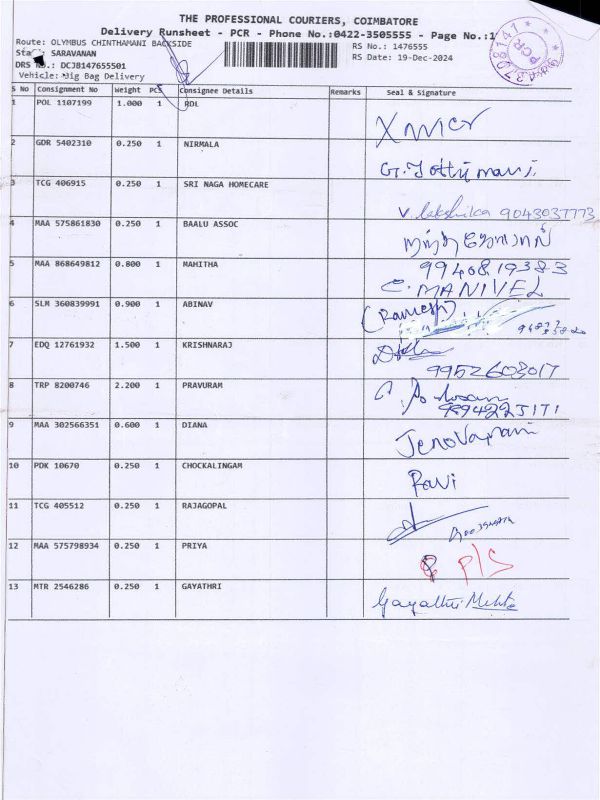 THE PROFESSIONAL COURIERS, COIMBATORE
Delivery Runsheet - PCR - Phone No.:0422-3505555 - Page No.:1
Route: OLYMBUS CHINTHAMANI BACKSIDE
RS No.: 1476555
SARAVANAN
RS Date: 19-Dec-2024
DRS No.: DCJ8147655501
Vehicle: Big Bag Delivery
S No Consignment No Weight PCS Consignee Details Remarks Seal & Signature
1 POL 1107199 1.000 1 RDL
2 GDR 5402310 0.250 1 NIRMALA
3 TCG 406915 0.250 1 SRI NAGA HOMECARE V. 9043037773
4 MAA 575861830 0.250 1 BAALU ASSOC
5 MAA 868649812 0.800 1 MAHITHA 9940819383
C. MANIVEL
6 SLM 360839991 0.900 1 ABINAV (Ramesh)
7 EDQ 12761932 1.500 1 KRISHNARAJ
9952603017
8 TRP 8200746 2.200 1 PRAVURAM
9 MAA 302566351 0.600 1 DIANA
10 PDK 10670 0.250 1 CHOCKALINGAM Ravi
11 TCG 405512 0.250 1 RAJAGOPAL
12 MAA 575798934 0.250 1 PRIYA P/S
13 MTR 2546286 0.250 1 GAYATHRI Gayathri Mehta